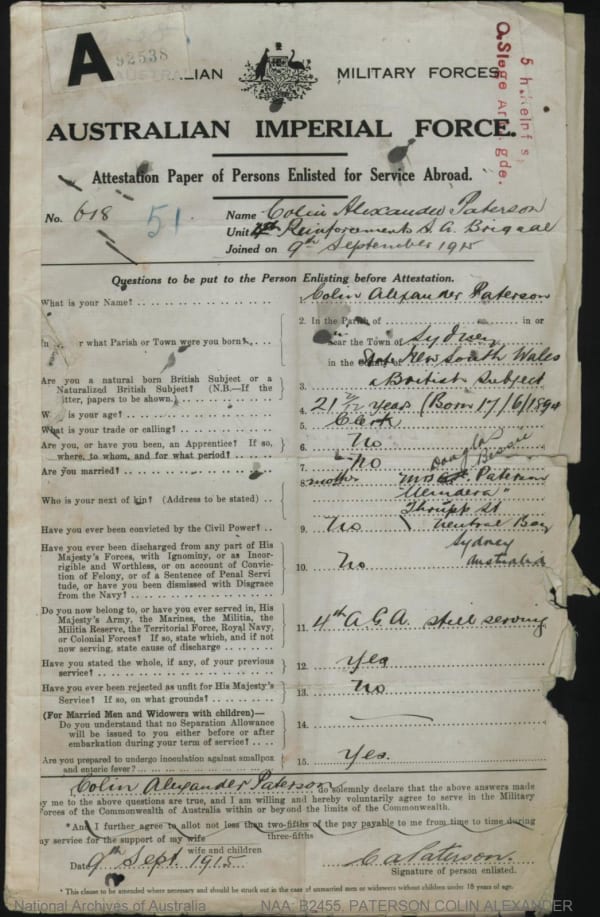 A
92538
AUSTRALIAN MILITARY FORCES.
5 h. Reinf s)
O.Siege Ar gde.
AUSTRALIAN IMPERIAL FORCE.
Attestation Paper of Persons Enlisted for Service Abroad.
No. 618 51
Name Colin Alexander Paterson
Unit 4th Reinforcements S.A. Brigade
Joined on 9th September 1915
Questions to be put to the Person Enlisting before Attestation.
What is your Name? 1. Colin Alexander Paterson
In or what Parish or Town were you born? 2. In the Parish of in or
near the Town of Sydney
in the County of State New South Wales
Are you a natural born British Subject or a
Naturalized British Subject? (N.B.—If the
latter, papers to be shown.) 3. a British Subject
W is your age? 4. 21 2/12 years (Born 17/6/1894
What is your trade or calling? 5. Clerk
Are you, or have you been, an Apprentice? If so,
where, to whom, and for what period? 6. No
Are you married? 7. No
Who is your next of kin? (Address to be stated) 8. mother Mrs Douglas Bessie Paterson
Thrupp St
Neutral Bay
Sydney
Australia
Have you ever been convicted by the Civil Power? 9. No
Have you ever been discharged from any part of His
Majesty's Forces, with Ignominy, or as Incor-
rigible and Worthless, or on account of Convic-
tion of Felony, or of a Sentence of Penal Servi
tude, or have you been dismissed with Disgrace
from the Navy? 10. No
Do you now belong to, or have you ever served in, His
Majesty's Army, the Marines, the Militia, the
Militia Reserve, the Territorial Force, Royal Navy,
or Colonial Forces? If so, state which, and if not
now serving, state cause of discharge 11. 4th A.G.A. still serving
Have you stated the whole, if any, of your previous
service? 12. Yes
Have you ever been rejected as unfit for His Majesty's
Service? If so, on what grounds? 13. No
(For Married Men and Widowers with children)—
Do you understand that no Separation Allowance
will be issued to you either before or after
embarkation during your term of service? 14.
Are you prepared to undergo inoculation against smallpox
and enteric fever? 15. Yes.
Colin Alexander Paterson do solemnly declare that the above answers made
by me to the above questions are true, and I am willing and hereby voluntarily agree to serve in the Military
Forces of the Commonwealth of Australia within or beyond the limits of the Commonwealth.
*And I further agree to allot not less than two-fifths of the pay payable to me from time to time during
three-fifths
my service for the support of my wife
wife and children
Date 9th Sept 1915 C A Paterson.
Signature of person enlisted.
* This clause to be amended where necessary and should be struck out in the case of unmarried men or widowers without children under 18 years of age.
National Archives of Australia NAA: B2455, PATERSON COLIN ALEXANDER